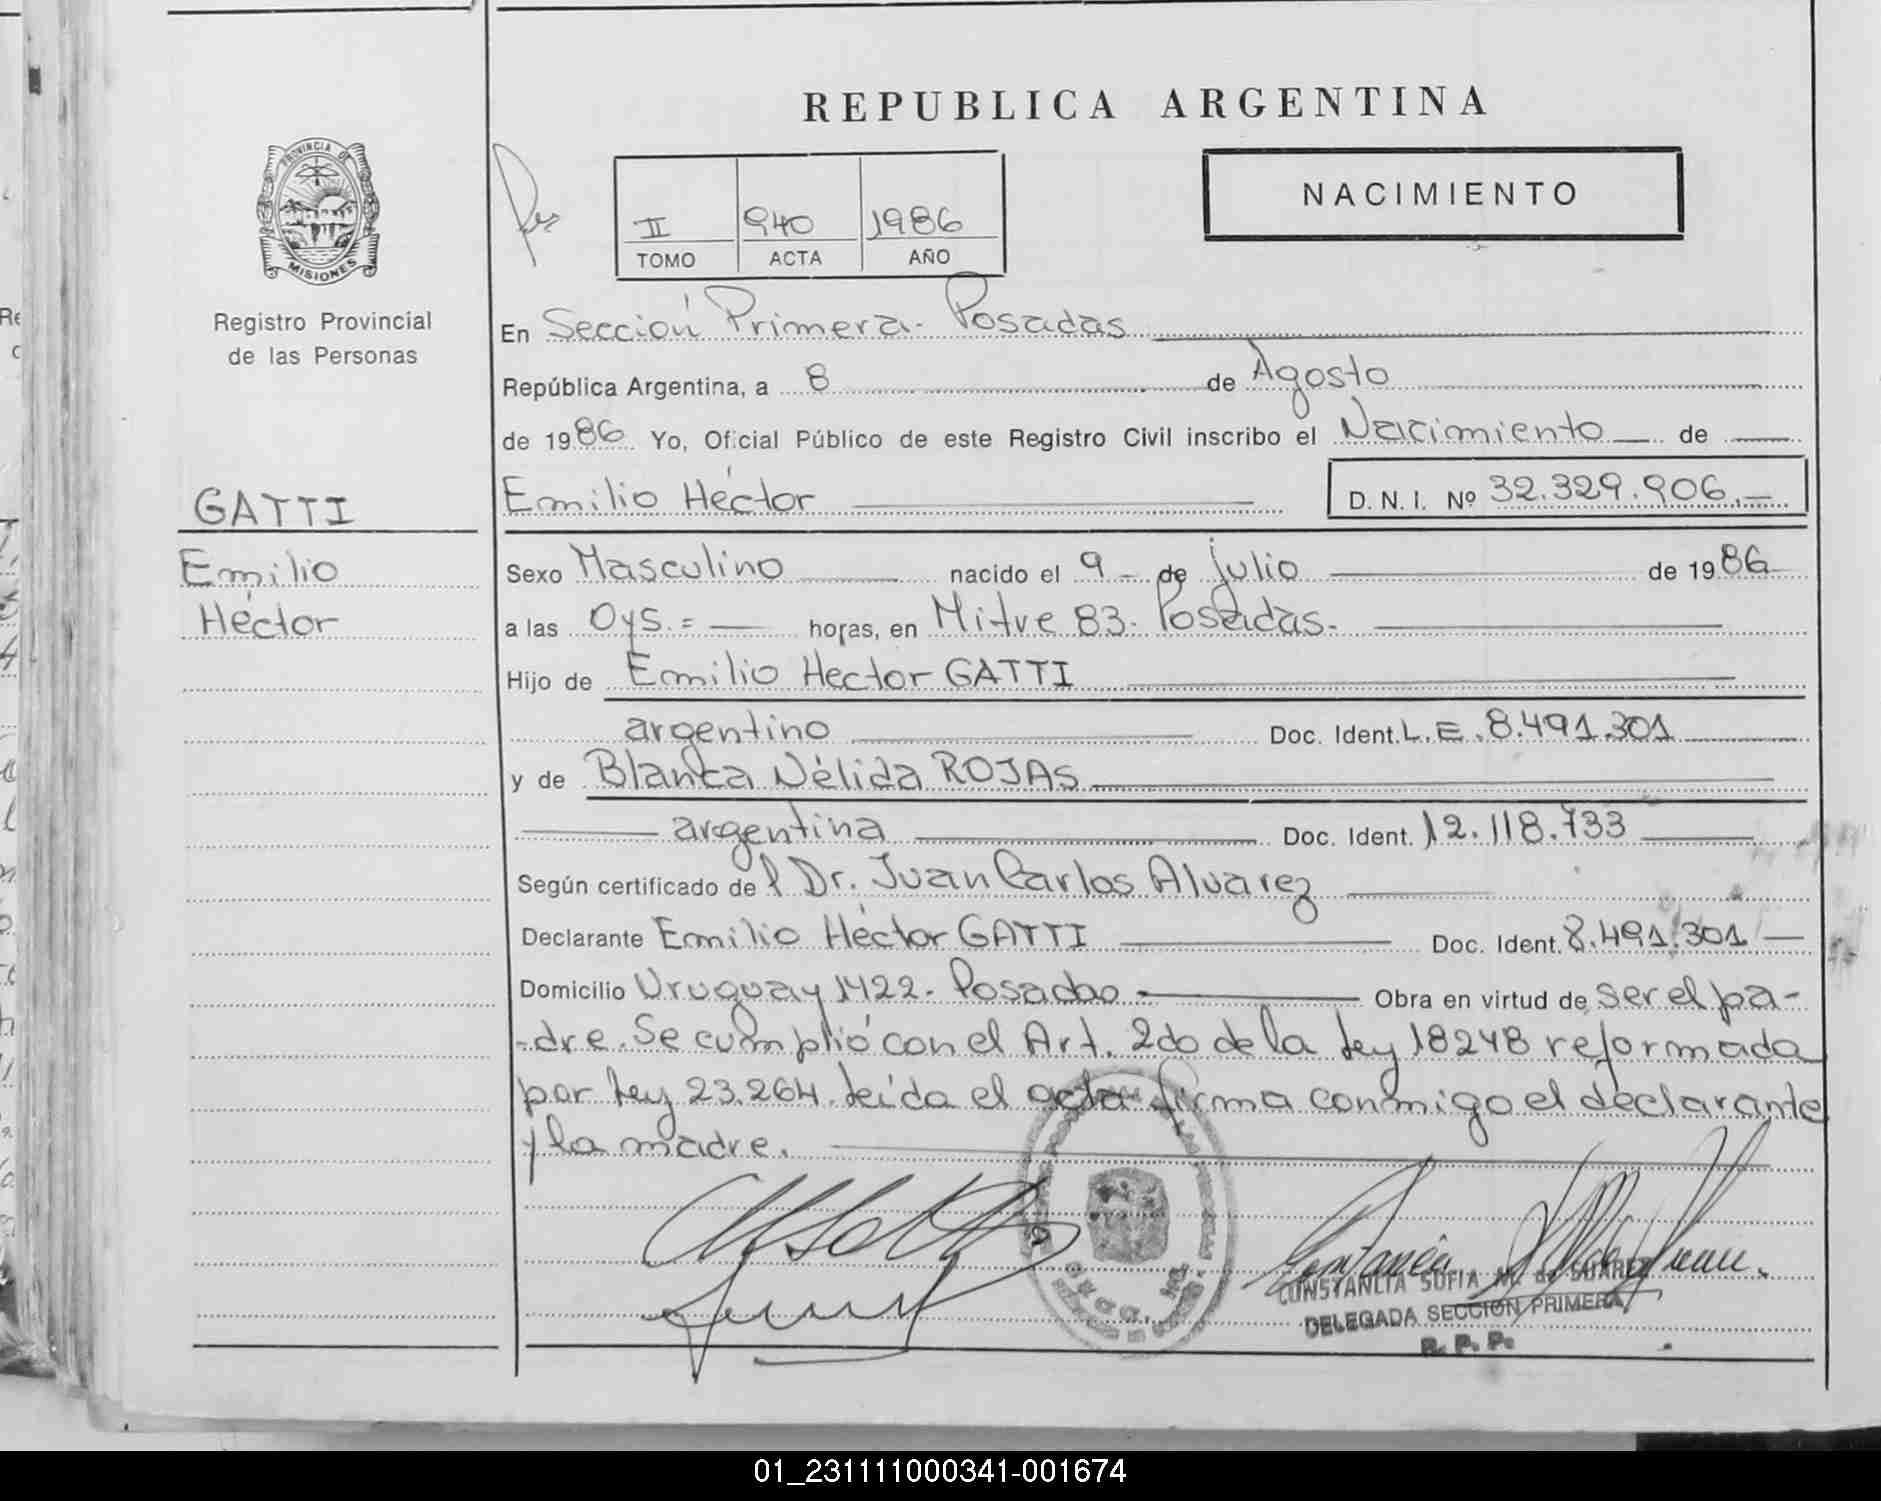 REPUBLICA ARGENTINA
PROVINCIA DE
MISIONES
Registro Provincial
de las Personas
II 940 1986
TOMO ACTA AÑO
NACIMIENTO
En Sección Primera - Posadas
República Argentina, a 8 de Agosto
de 1986 Yo, Oficial Público de este Registro Civil inscribo el Nacimiento de
GATTI
Emilio Héctor D. N. I. Nº 32.329.906.-
Emilio
Héctor
Sexo Masculino nacido el 9 de julio de 1986
a las 0y5.= horas, en Mitre 83- Posadas-
Hijo de Emilio Hector GATTI
argentino Doc. Ident. L.E. 8.491.301
y de Blanca Nélida ROJAS
argentina Doc. Ident. 12.118.733
Según certificado del Dr. Juan Carlos Alvarez
Declarante Emilio Héctor GATTI Doc. Ident. 8.491.301
Domicilio Uruguay 1422- Posadas- Obra en virtud de ser el pa-
-dre. Se cumplió con el Art. 2do de la Ley 18248 reformada
por Ley 23.264. Leída el acta firma conmigo el declarante
y la madre.
CONSTANCIA SOFIA M. de SUAREZ
DELEGADA SECCION PRIMERA
R. P. P.
01_231111000341-001674